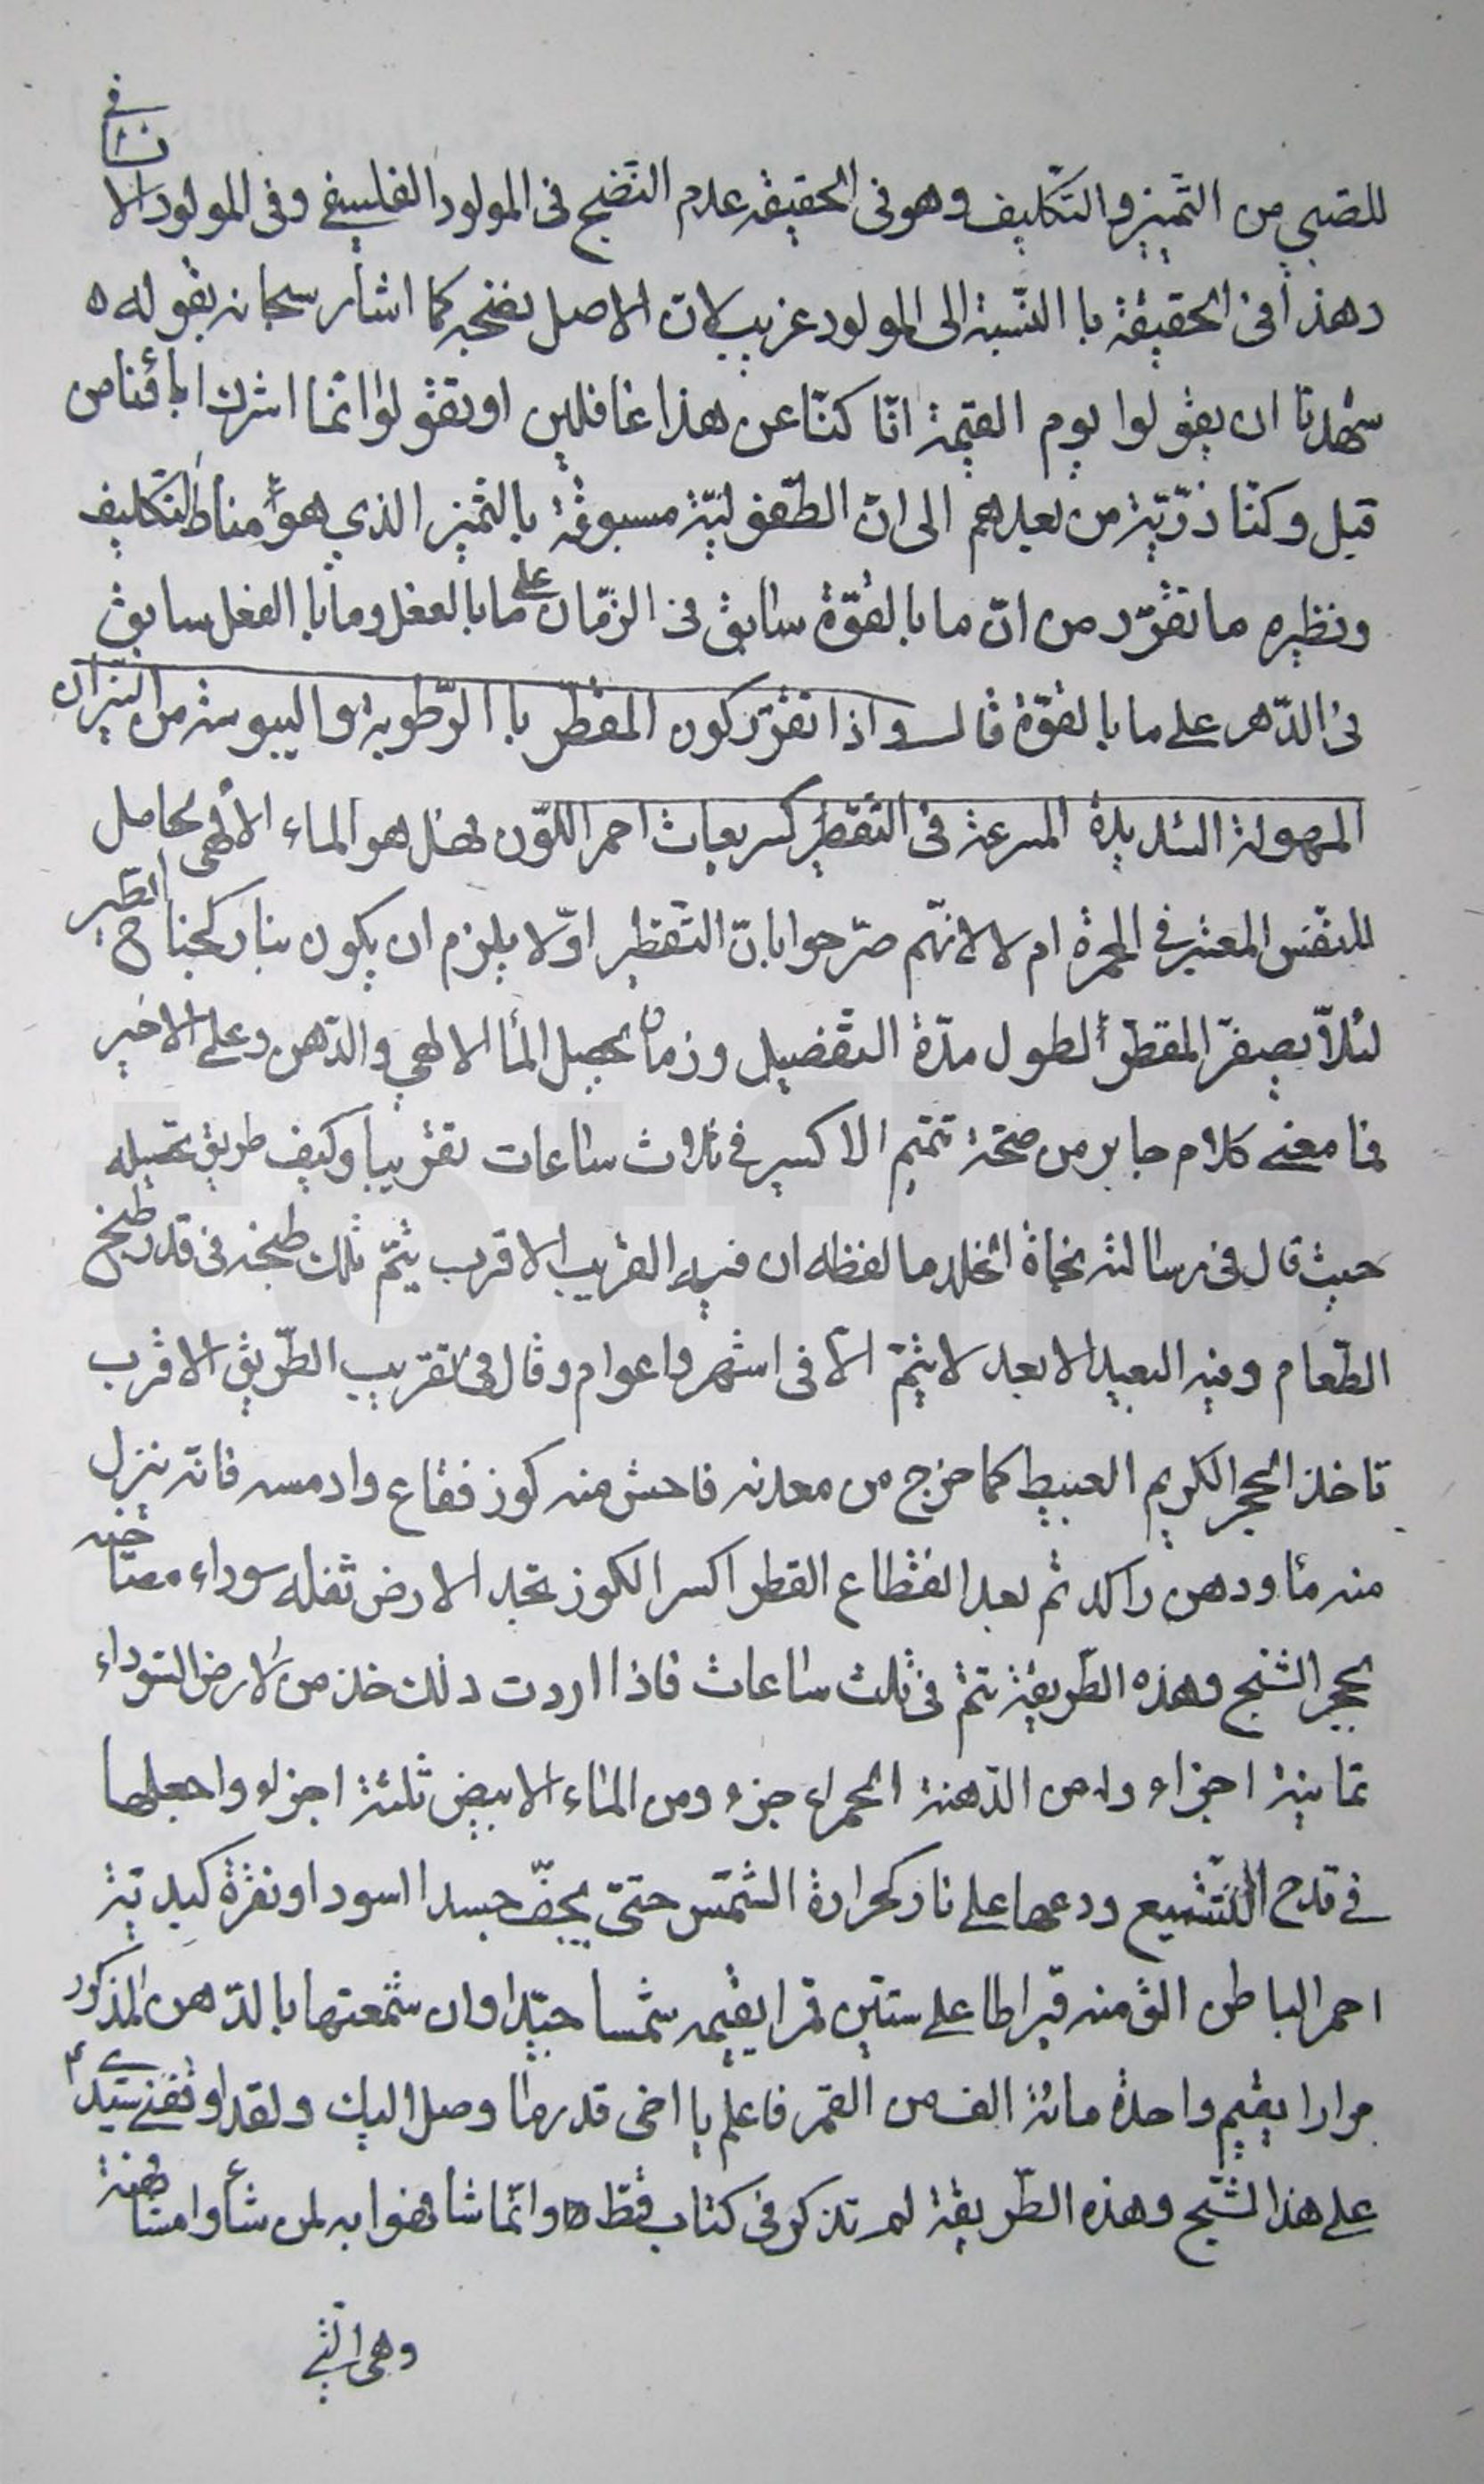 للصبي من التميز والتكليف وهو فى الحقيقة عدم النضج فى المولود الفلسفي وفى المولود الانسانى
وهذا فى الحقيقة با النسبة الى المولود غريب لان الاصل نضجه كما اشار سبحانه بقوله ه
شهدنا ان يقولوا يوم القيمة انا كنا عن هذا غافلين او تقولوا انما اشرك ابائنا من
قبل وكنا ذرية من بعدهم الى ان الطفولية مسبوقة بالتميز الذي هو مناط التكليف
ونظيره ما تقرر من ان ما بالقوة سابق فى الزمان على ما بالفعل وما با الفعل سابق
فى الدهر على ما بالقوة قال واذا تقرر كون المقطر با الرطوبة واليبوسة من النيران
المهولة الشديدة المسرعة فى التقطير كسريعات احمر اللون فهل هو الماء الالهى الحامل
للنفس المعتبر فى الحمرة ام لا لانهم صرحوا بان التقطير اولا يلزم ان يكون بنار كجناح الطير
لئلا يصفر المقطر لطول مدة التفصيل وزمان تحصيل الماء الالهي والدهن وعلى الاخير
فما معنى كلام جابر من صحة تتميم الاكسير فى ثلاث ساعات تقريبا وكيف طريق تحصيله
حيث قال فى رسالته نجاة الخلد ما لفظه ان فيه القريب الاقرب يتم ثلث طبخه فى قدر طبخ
الطعام وفيه البعيد الابعد لا يتم الا فى اشهر واعوام وقال فى تقريب الطريق الاقرب
تاخذ الحجر الكريم العبيط كما خرج من معدنه فاحش منه كوز فقاع وادمسه فانه ينزل
منه ماء ودهن راكد ثم بعد انقطاع القطر اكسر الكوز تجد الارض ثفله سوداء مصاخنه
بحجر الشبج وهذه الطريقة تتم فى ثلث ساعات فاذا اردت ذلك خذ من الارض السوداء
ثمانية اجزاء ومن الدهنة الحمراء جزء ومن الماء الابيض ثلثة اجزاء واجعلها
فى قدح التشميع ودعها على نار كحرارة الشمس حتى يجف جسدا اسود او نقرة كبدية
احمر الباطن الق منه قيراطا على ستين قمرا يقيمه شمسا جيدا وان شمعتها بالدهن المذكور
مرارا يقيم واحدة مائة الف من القمر فاعلم يا اخى قدر ما وصل اليك ولقد اوقفنى سيدى ع
على هذا الشبج وهذه الطريقة لم تذكر فى كتاب قط ه وانما شافهوا به لمن شاوا مشافهة
وهى التى